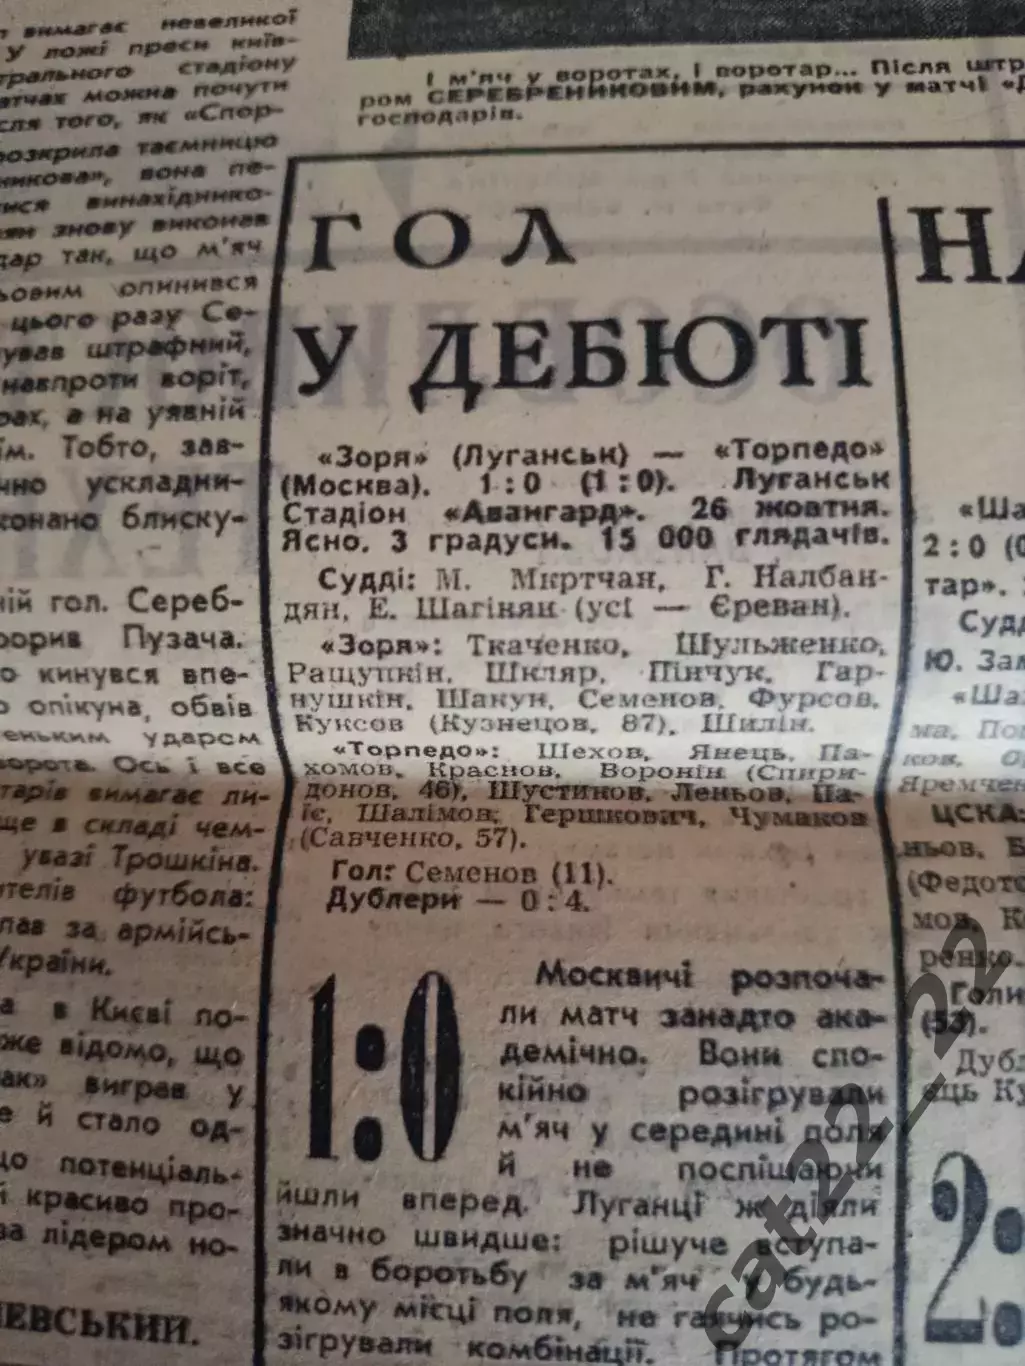 вимагає невеликої
У ложі преси київ-
трального стадіону
атчах можна почути
сля того, як «Спор-
розкрила таємницю
никова», вона пе-
тися винахіднико-
ян знову виконав
дар так, що м'яч
ьовим опинився
цього разу Се-
нував штрафний,
навпроти воріт,
рах, а на уявній
їм. Тобто, зав-
чно ускладни-
конано блиску-
ній гол. Сереб-
рорив Пузача.
о кинувся впе-
о опікуна, обвів
теньким ударом
ворота. Ось і все
тарів вимагає ли-
ще в складі чем-
увазі Трошкіна.
ителів футбола:
лав за армійсь-
України.
а в Києві по-
же відомо, що
ак» виграв у
е й стало од-
що потенціаль-
й красиво про-
за лідером но-
ЛЕВСЬКИЙ.
І м'яч у воротах, і воротар... Після штр
ром СЕРЕБРЕНИКОВИМ, рахунок у матчі «Д
господарів.
ГОЛ
У ДЕБЮТІ
«Зоря» (Луганськ) — «Торпедо»
(Москва). 1:0 (1:0). Луганськ
Стадіон «Авангард». 26 жовтня.
Ясно. 3 градуси. 15 000 глядачів.
Судді: М. Мкртчан, Г. Налбан-
дян, Е. Шагінян (усі — Єреван).
«Зоря»: Ткаченко, Шульженко,
Ращупкін, Шкляр, Пінчук, Гар-
нушкін, Шакун, Семенов, Фурсов,
Куксов (Кузнецов, 87), Шилін.
«Торпедо»: Шехов, Янець, Па-
хомов, Краснов, Воронін (Спири-
донов, 46), Шустиков, Леньов, Па-
іс, Шалімов, Гершкович, Чумаков
(Савченко, 57).
Гол: Семенов (11).
Дублери — 0:4.
1:0
Москвичі розпоча-
ли матч занадто ака-
демічно. Вони спо-
кійно розігрували
м'яч у середині поля
й не поспішаючи
йшли вперед. Луганці ж діяли
значно швидше: рішуче вступа-
ли в боротьбу за м'яч у будь-
якому місці поля, не гаючись ро-
зігрували комбінації. Протягом
НА
«Ша
2:0 (0
тар».
Судд
Ю. Зам
«Ша
ма, По
ков,
Яремчен
ЦСКА:
ньов, Б
(Федото
мов, К
ренко.
Голи
(53).
Дубл
ець Ку
2:
cat22_22